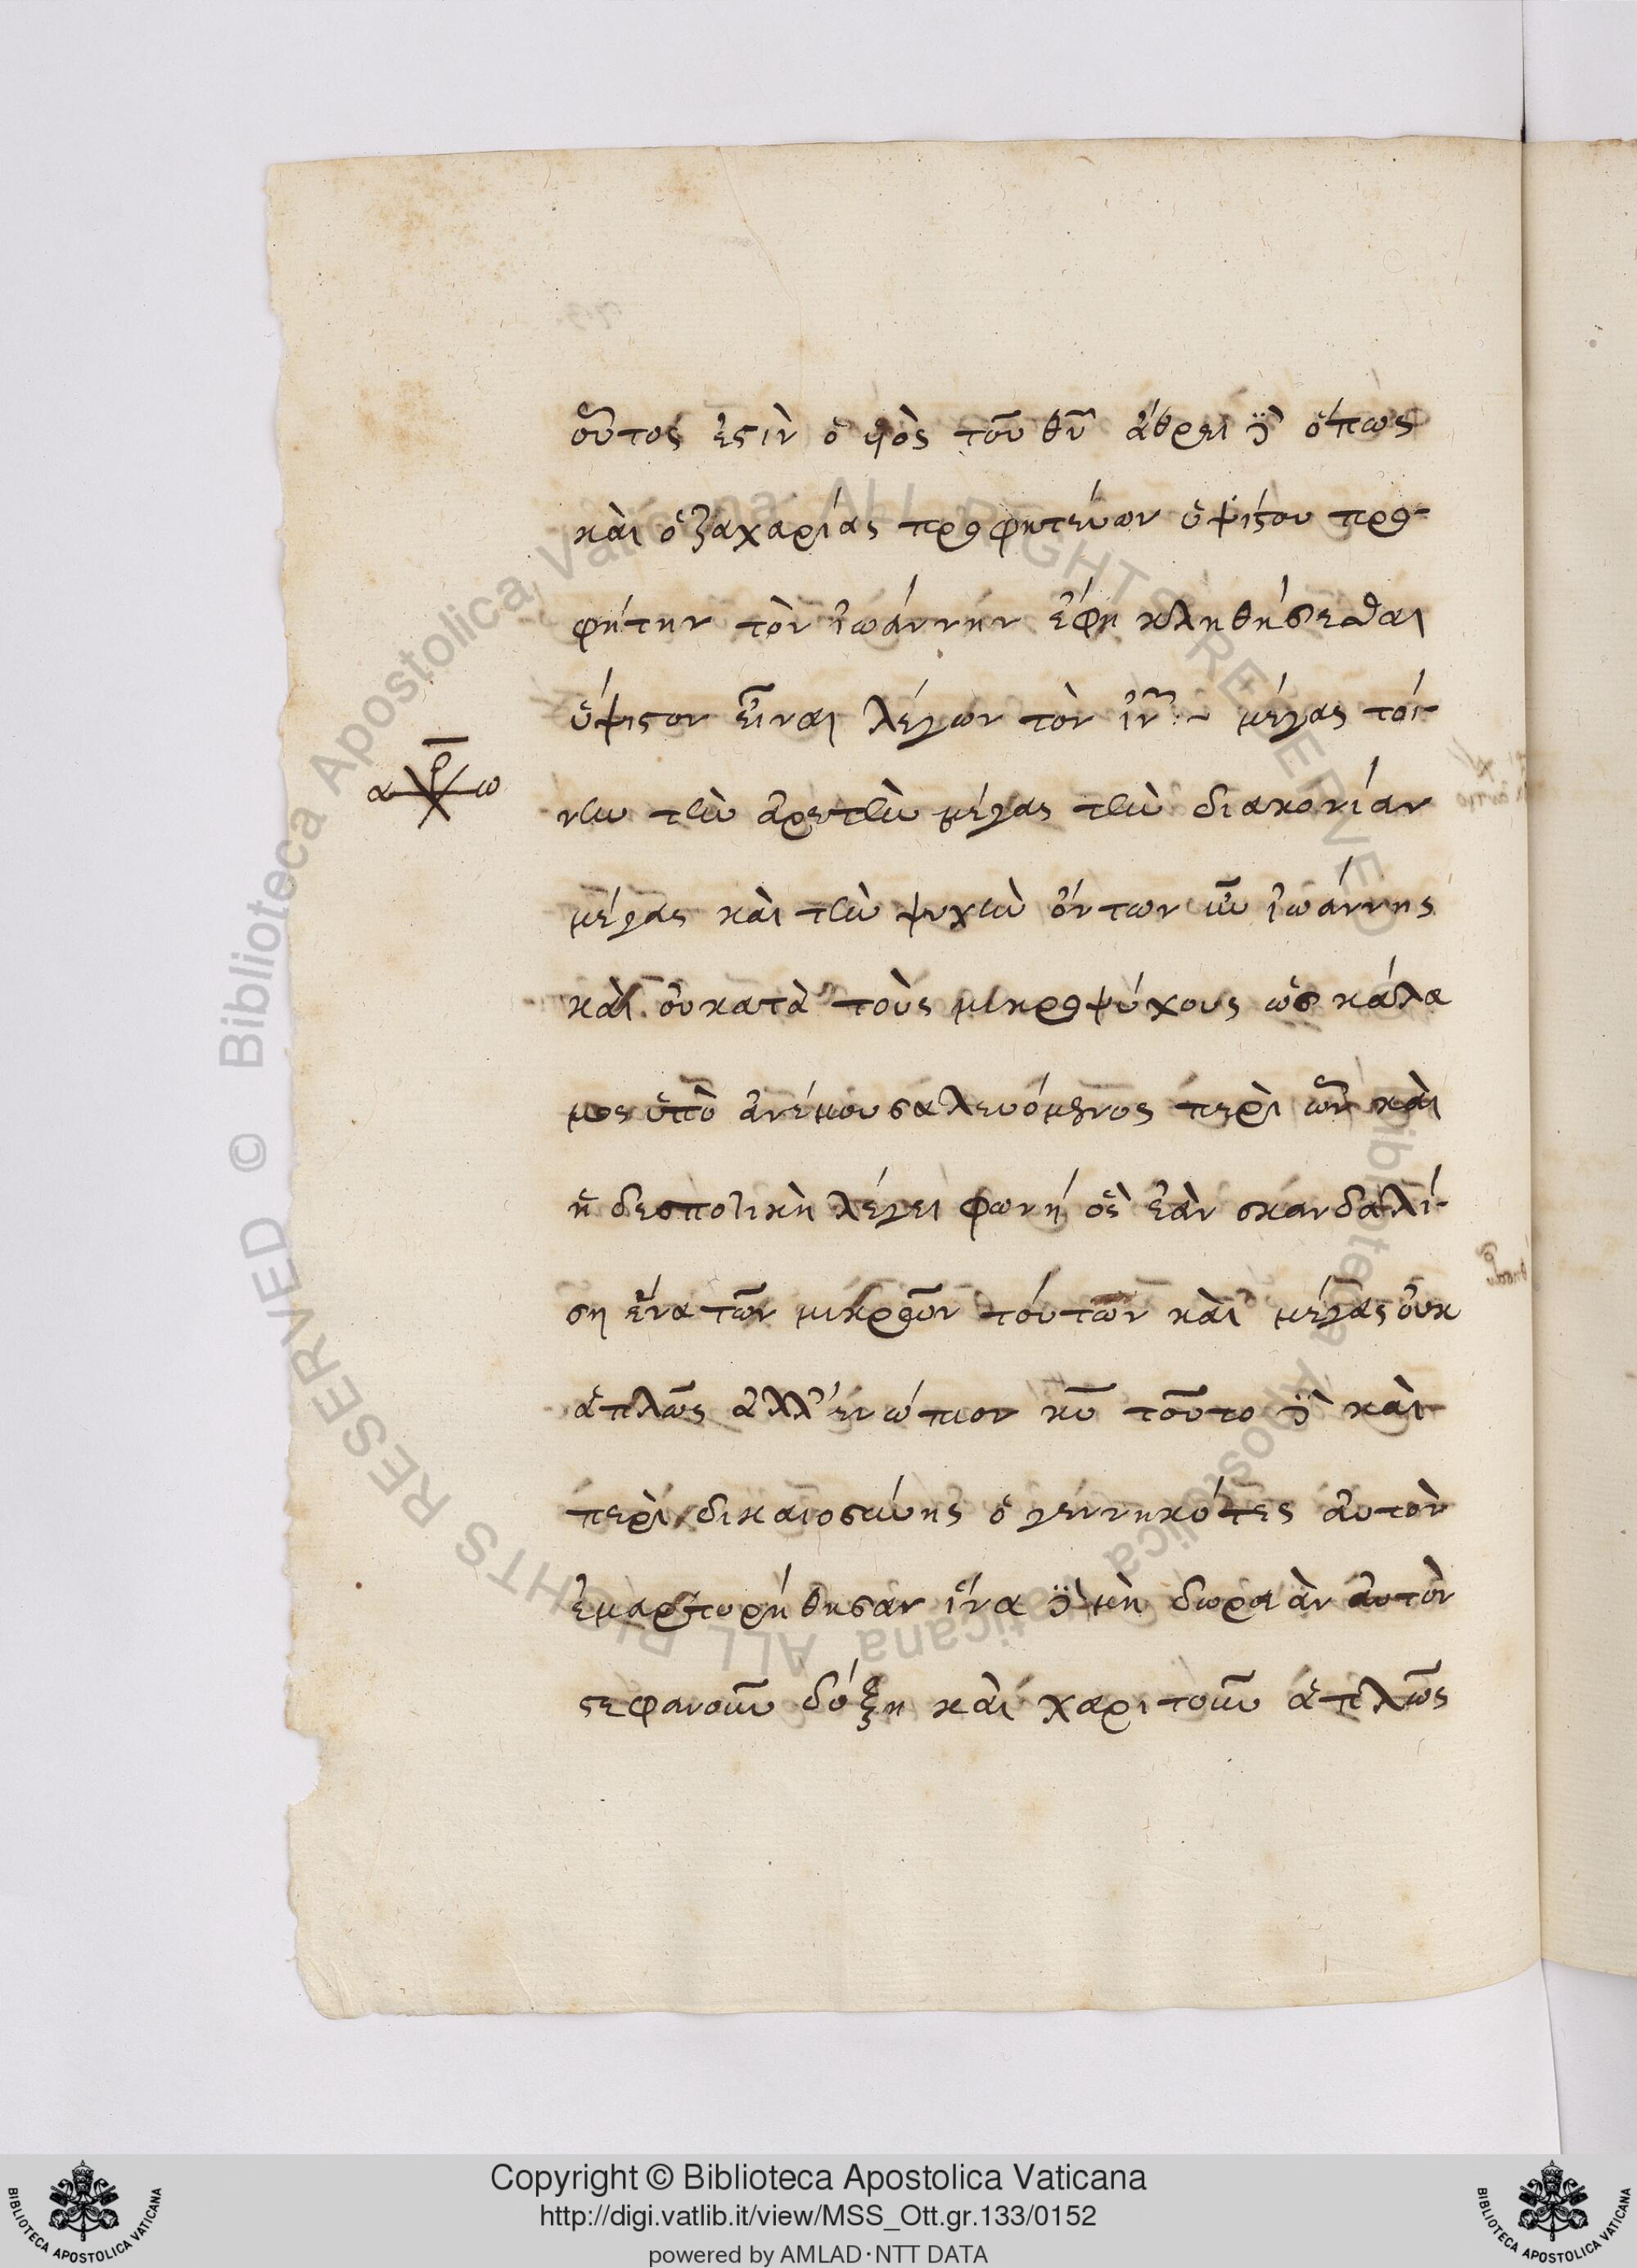 οὗτος ἐστὶν ὁ υἱὸς τοῦ θυ ἄθρει δὲ ὅπως
καὶ ὁ ζαχαρίας προφητεύων ὑψίστου προ-
φήτην τὸν ἰωάννην ἔφη κληθήσεσθαι
ὕψιστον εἶναι λέγων τὸν ιν :~ μέγας τοί-
νυν τὴν ἀρετὴν μέγας τὴν διακονίαν
α ω
μέγας καὶ τὴν ψυχὴν ὄντων ἦν ἰωάννης
καὶ οὐ κατὰ τοὺς μικροψύχους ὡς κάλα
μος ὑπὸ ἀνέμου σαλευόμενος περὶ ὧν καὶ
ἡ δεσποτικὴ λέγει φωνή ὃς ἐὰν σκανδαλί-
ση ἕνα τῶν μικρῶν τούτων καὶ μέγας οὐκ
ἁπλῶς ἀλλ' ἐνώπιον κυ τοῦτο δὲ καὶ
περὶ δικαιοσύνης ὁ γεννηκότες αὐτὸν
ἐμαρτυρήθησαν ἵνα δὲ μὴ δωρεὰν αὐτὸν
στεφανοῦν δόξη καὶ χαριτοῦν ἁπλῶς
Copyright © Biblioteca Apostolica Vaticana
http://digi.vatlib.it/view/MSS_Ott.gr.133/0152
powered by AMLAD·NTT DATA
BIBLIOTECA APOSTOLICA VATICANA
BIBLIOTECA APOSTOLICA VATICANA
© Biblioteca Apostolica Vaticana ALL RIGHTS RESERVED
Biblioteca Apostolica Vaticana ALL RIGHTS RESERVED